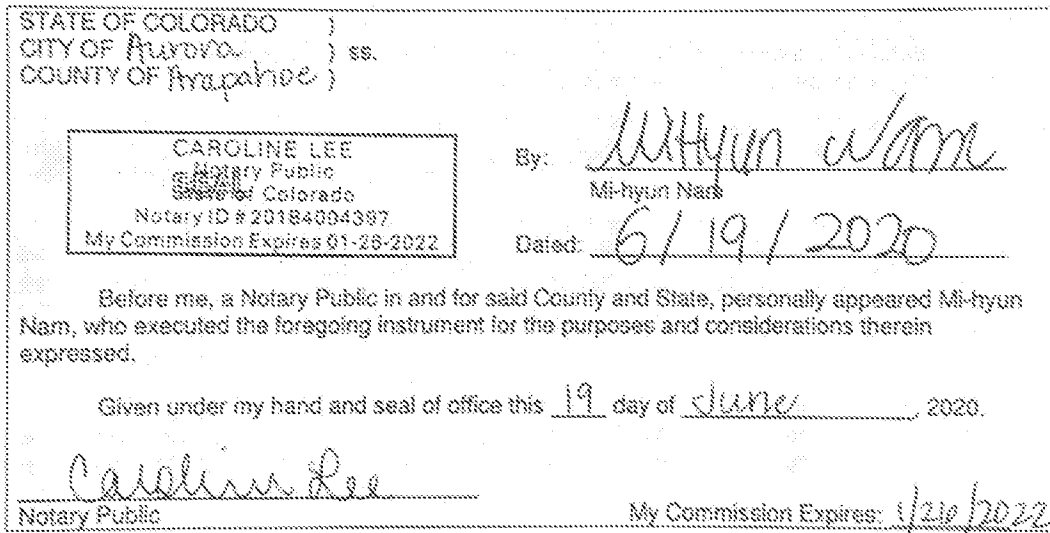 STATE OF COLORADO )
CITY OF Aurora ) ss.
COUNTY OF Arapahoe )
CAROLINE LEE
Notary Public
State of Colorado
Notary ID # 20184004397
My Commission Expires 01-26-2022
By: MiHyun Nam
Mi-hyun Nam
Dated: 6/19/2020
Before me, a Notary Public in and for said County and State, personally appeared Mi-hyun
Nam, who executed the foregoing instrument for the purposes and considerations therein
expressed.
Given under my hand and seal of office this 19 day of June, 2020.
Caroline Lee
Notary Public
My Commission Expires: 1/26/2022